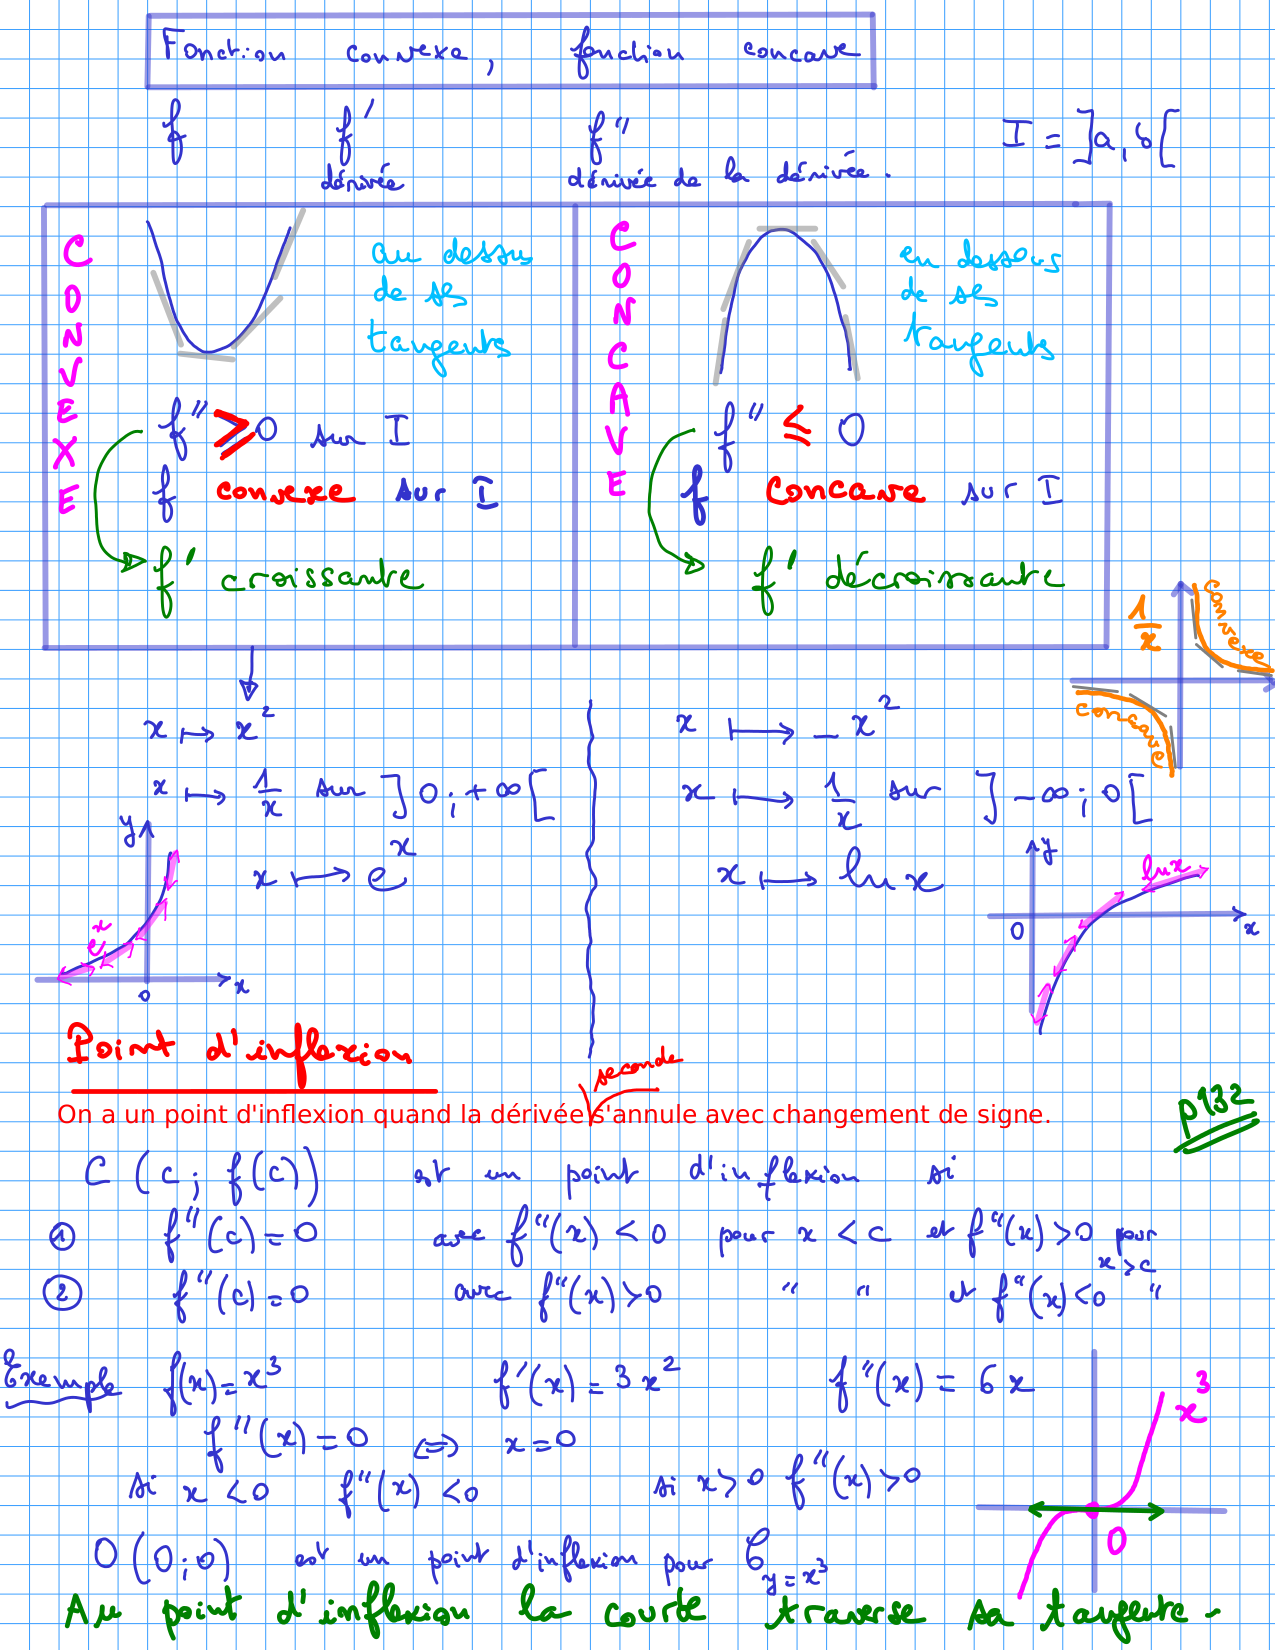 Fonction convexe, fonction concave
f f' f" I = ]a, b[
dérivée dérivée de la dérivée.
CONVEXE
au dessus
de ses
tangents
f" ⩾ 0 sur I
f convexe sur I
f' croissante
CONCAVE
en dessous
de ses
tangents
f" ⩽ 0
f concave sur I
f' décroissante
1/x
convexe
concave
x ↦ x²
x ↦ 1/x sur ]0 ; +∞[
x ↦ eˣ
y
eˣ
0 x
x ↦ − x²
x ↦ 1/x sur ]−∞ ; 0[
x ↦ ln x
y
ln x
0 x
Point d'inflexion
seconde
On a un point d'inflexion quand la dérivée s'annule avec changement de signe.
p132
C (c ; f(c)) est un point d'inflexion si
① f"(c) = 0 avec f"(x) < 0 pour x < c et f"(x) > 0 pour x > c
② f"(c) = 0 avec f"(x) > 0 " " et f"(x) < 0 "
Exemple f(x) = x³ f'(x) = 3x² f"(x) = 6x
f"(x) = 0 ⟺ x = 0
si x < 0 f"(x) < 0 si x > 0 f"(x) > 0
x³
0
O (0 ; 0) est un point d'inflexion pour 𝒞 y = x³
Au point d'inflexion la courbe traverse sa tangente.